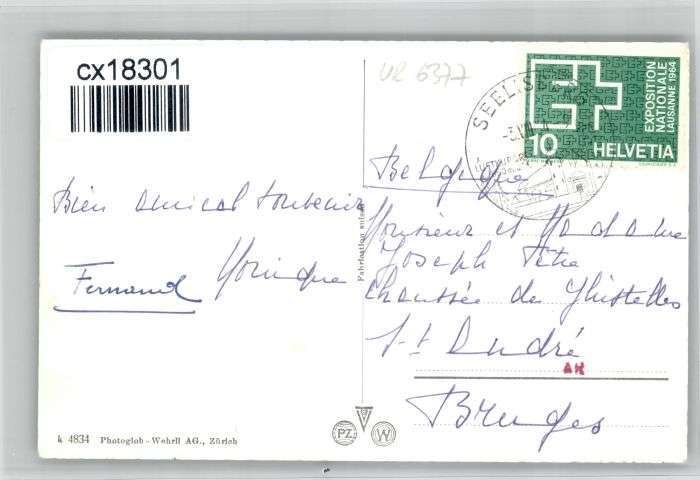 cx18301
UR 6377
EXPOSITION
NATIONALE
LAUSANNE 1964
10 HELVETIA
SEELISB
Belgique
Bien amical souvenir
Monique
Fernand
Monsieur et Madame
Joseph
Chaussée de Ghistelles
St André
AH
Bruges
Fabrication suisse
PZ W
k 4834 Photoglob-Wehrli AG., Zürich